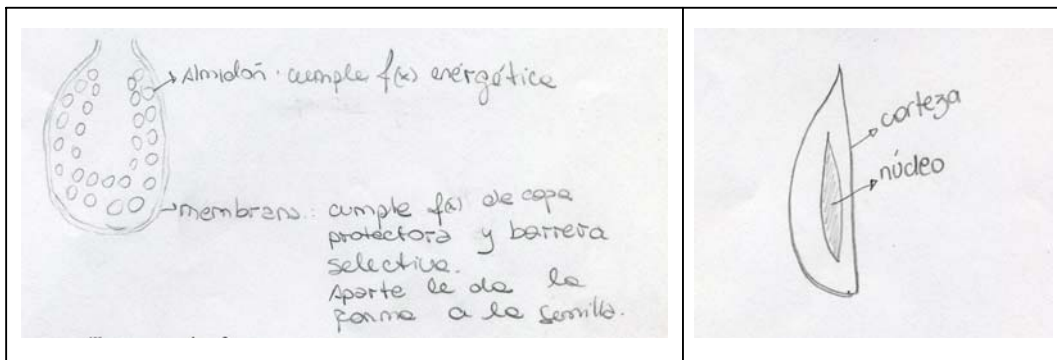 Almidón: cumple f(x) energética
membrana: cumple f(x) de capa
protectora y barrera
selectiva.
Aparte le da la
forma a la semilla.
corteza
núcleo